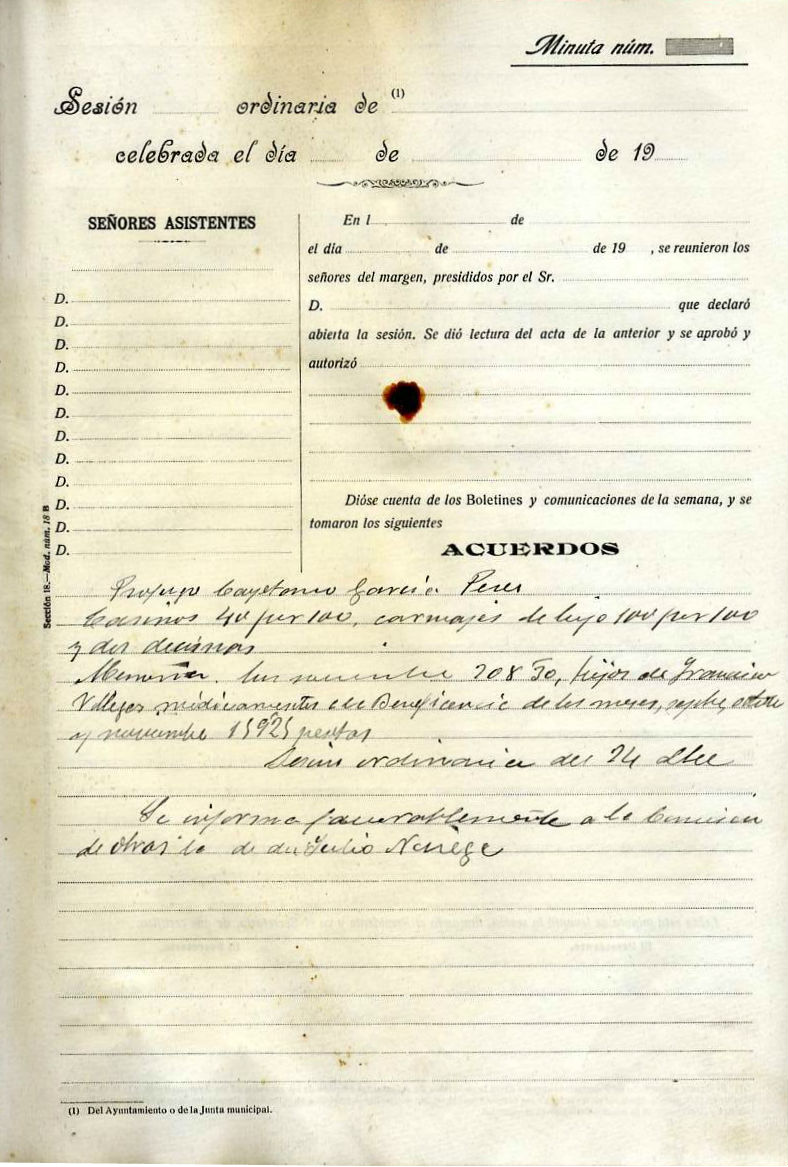 Minuta núm.
Sesión ordinaria de (1)
celebrada el día de de 19
SEÑORES ASISTENTES
D.
D.
D.
D.
D.
D.
D.
D.
D.
D.
D.
D.
En l de
el día de de 19 , se reunieron los
señores del margen, presididos por el Sr.
D. que declaró
abierta la sesión. Se dió lectura del acta de la anterior y se aprobó y
autorizó
Dióse cuenta de los Boletines y comunicaciones de la semana, y se
tomaron los siguientes
ACUERDOS
Sección 18.—Mod. núm. 18 B
Profugo Cayetano García Perez
Casinos 40 por 100, carruajes de lujo 100 por 100
y dos decimas
noviembre 208 50, hijos de Francisco
Villegas medicamentos de Beneficencia de los meses, sepbre, octubre
y noviembre pesetas
Sesion ordinaria del 24 Dbre
Se informa favorablemente a la Comision
de obras la de dn Julio Noriega
(1) Del Ayuntamiento o de la Junta municipal.